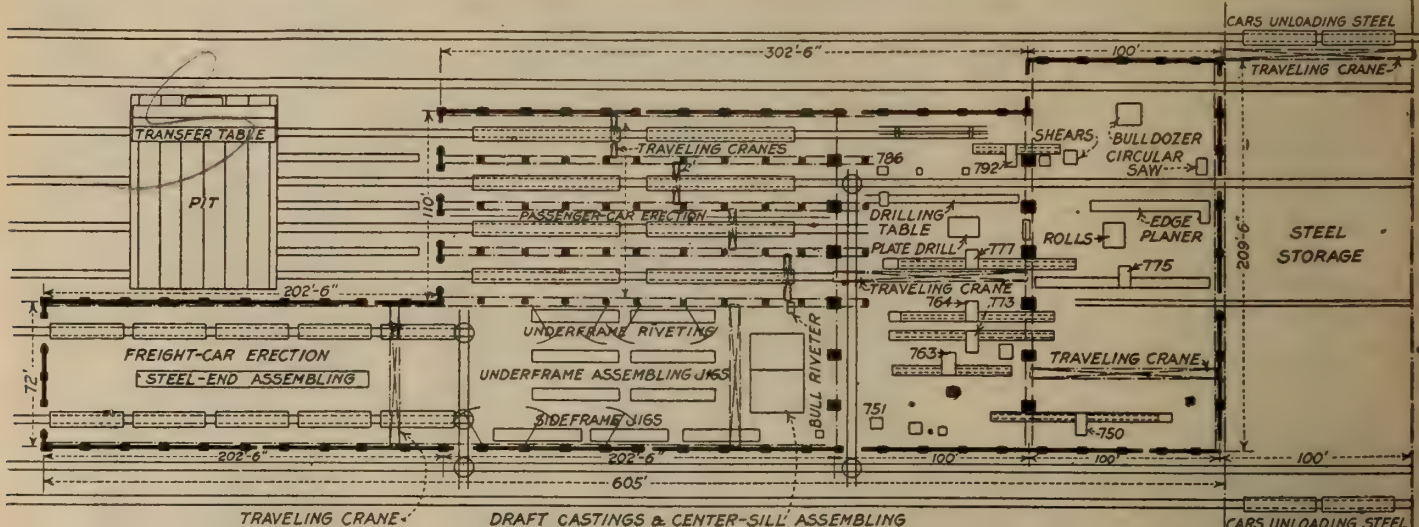 CARS UNLOADING STEEL
302'-6"
100'
TRAVELING CRANE
TRANSFER TABLE
TRAVELING CRANES
SHEARS
BULLDOZER
CIRCULAR
SAW
786
792
PIT
110'
2'
PASSENGER-CAR ERECTION
DRILLING
TABLE
ROLLS
EDGE
PLANER
STEEL
STORAGE
209'-6"
PLATE DRILL
777
775
202'-6"
TRAVELING CRANE
764
773
UNDERFRAME RIVETING
FREIGHT-CAR ERECTION
STEEL-END ASSEMBLING
72'
UNDERFRAME ASSEMBLING JIGS
BULL RIVETER
763
TRAVELING CRANE
SIDEFRAME JIGS
751
750
202'-6"
202'-6"
100'
100'
100'
605'
TRAVELING CRANE
DRAFT CASTINGS & CENTER-SILL ASSEMBLING
CARS UNLOADING STEEL